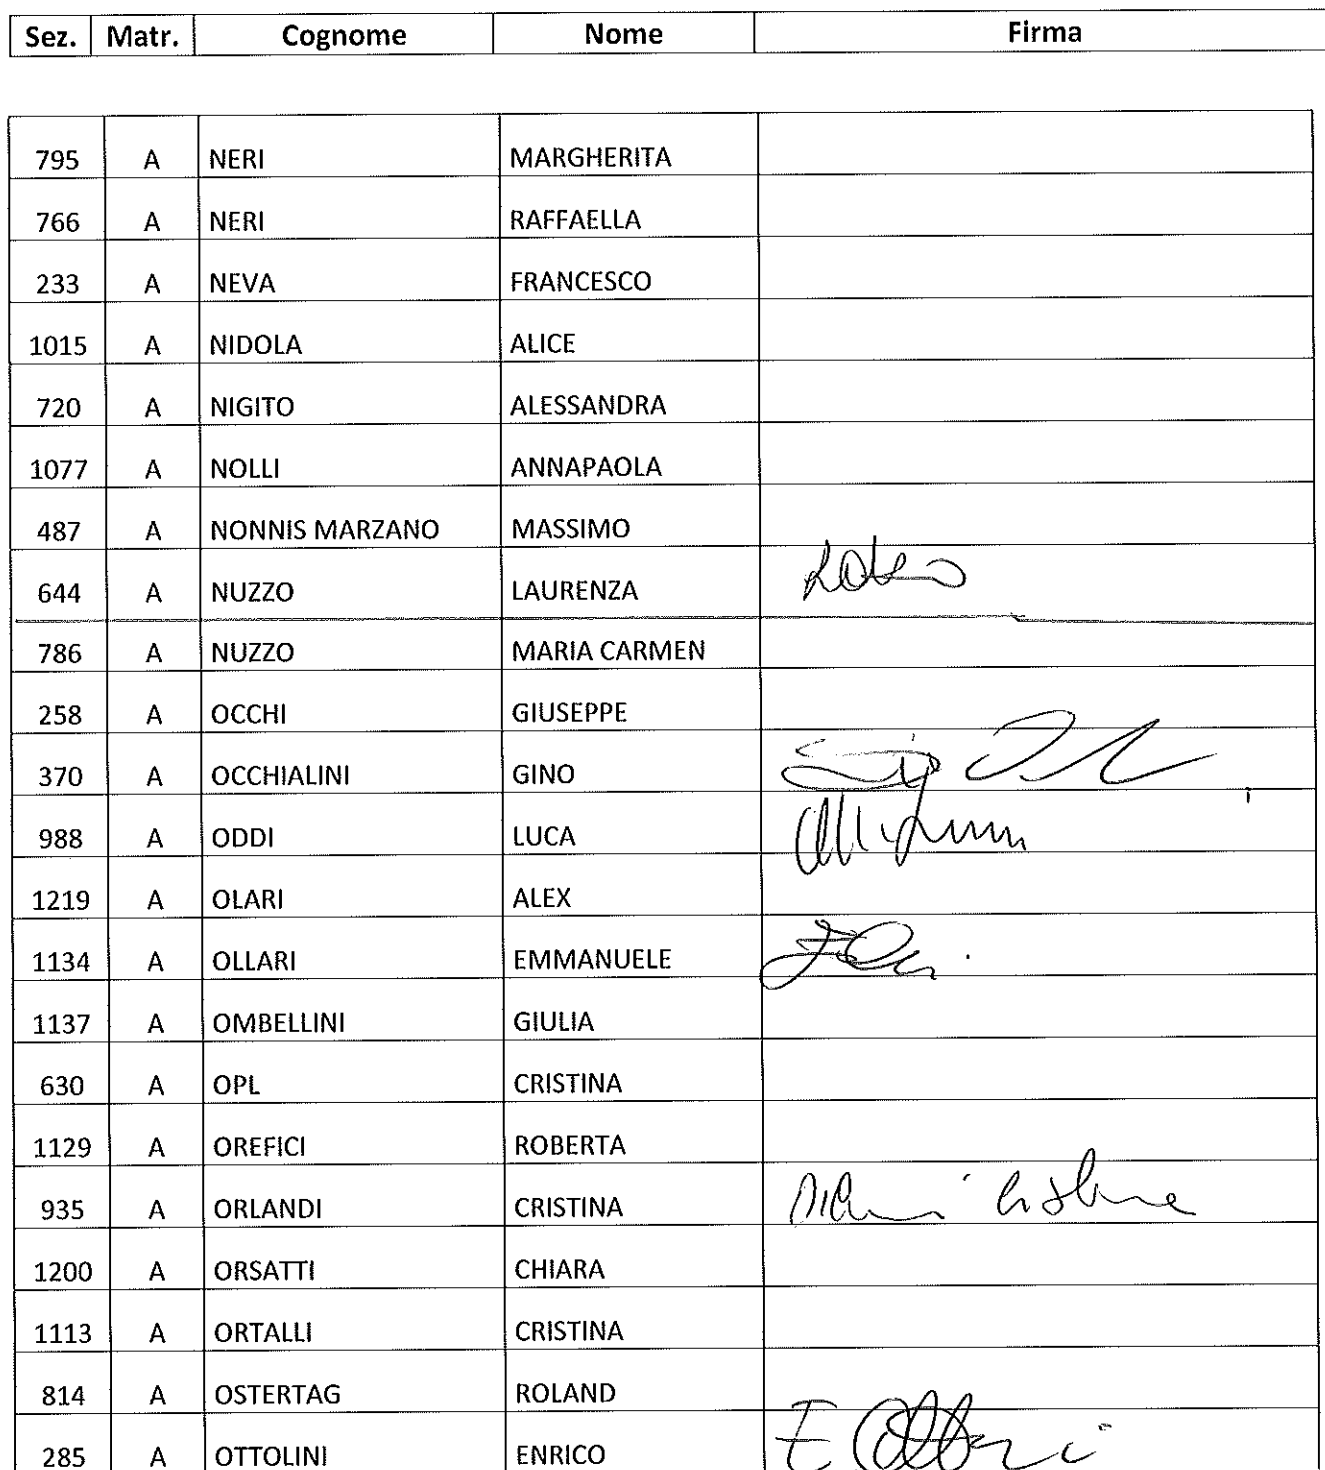 Sez. Matr. Cognome Nome Firma
795 A NERI MARGHERITA
766 A NERI RAFFAELLA
233 A NEVA FRANCESCO
1015 A NIDOLA ALICE
720 A NIGITO ALESSANDRA
1077 A NOLLI ANNAPAOLA
487 A NONNIS MARZANO MASSIMO
644 A NUZZO LAURENZA
786 A NUZZO MARIA CARMEN
258 A OCCHI GIUSEPPE
370 A OCCHIALINI GINO
988 A ODDI LUCA
1219 A OLARI ALEX
1134 A OLLARI EMMANUELE
1137 A OMBELLINI GIULIA
630 A OPL CRISTINA
1129 A OREFICI ROBERTA
935 A ORLANDI CRISTINA
1200 A ORSATTI CHIARA
1113 A ORTALLI CRISTINA
814 A OSTERTAG ROLAND
285 A OTTOLINI ENRICO